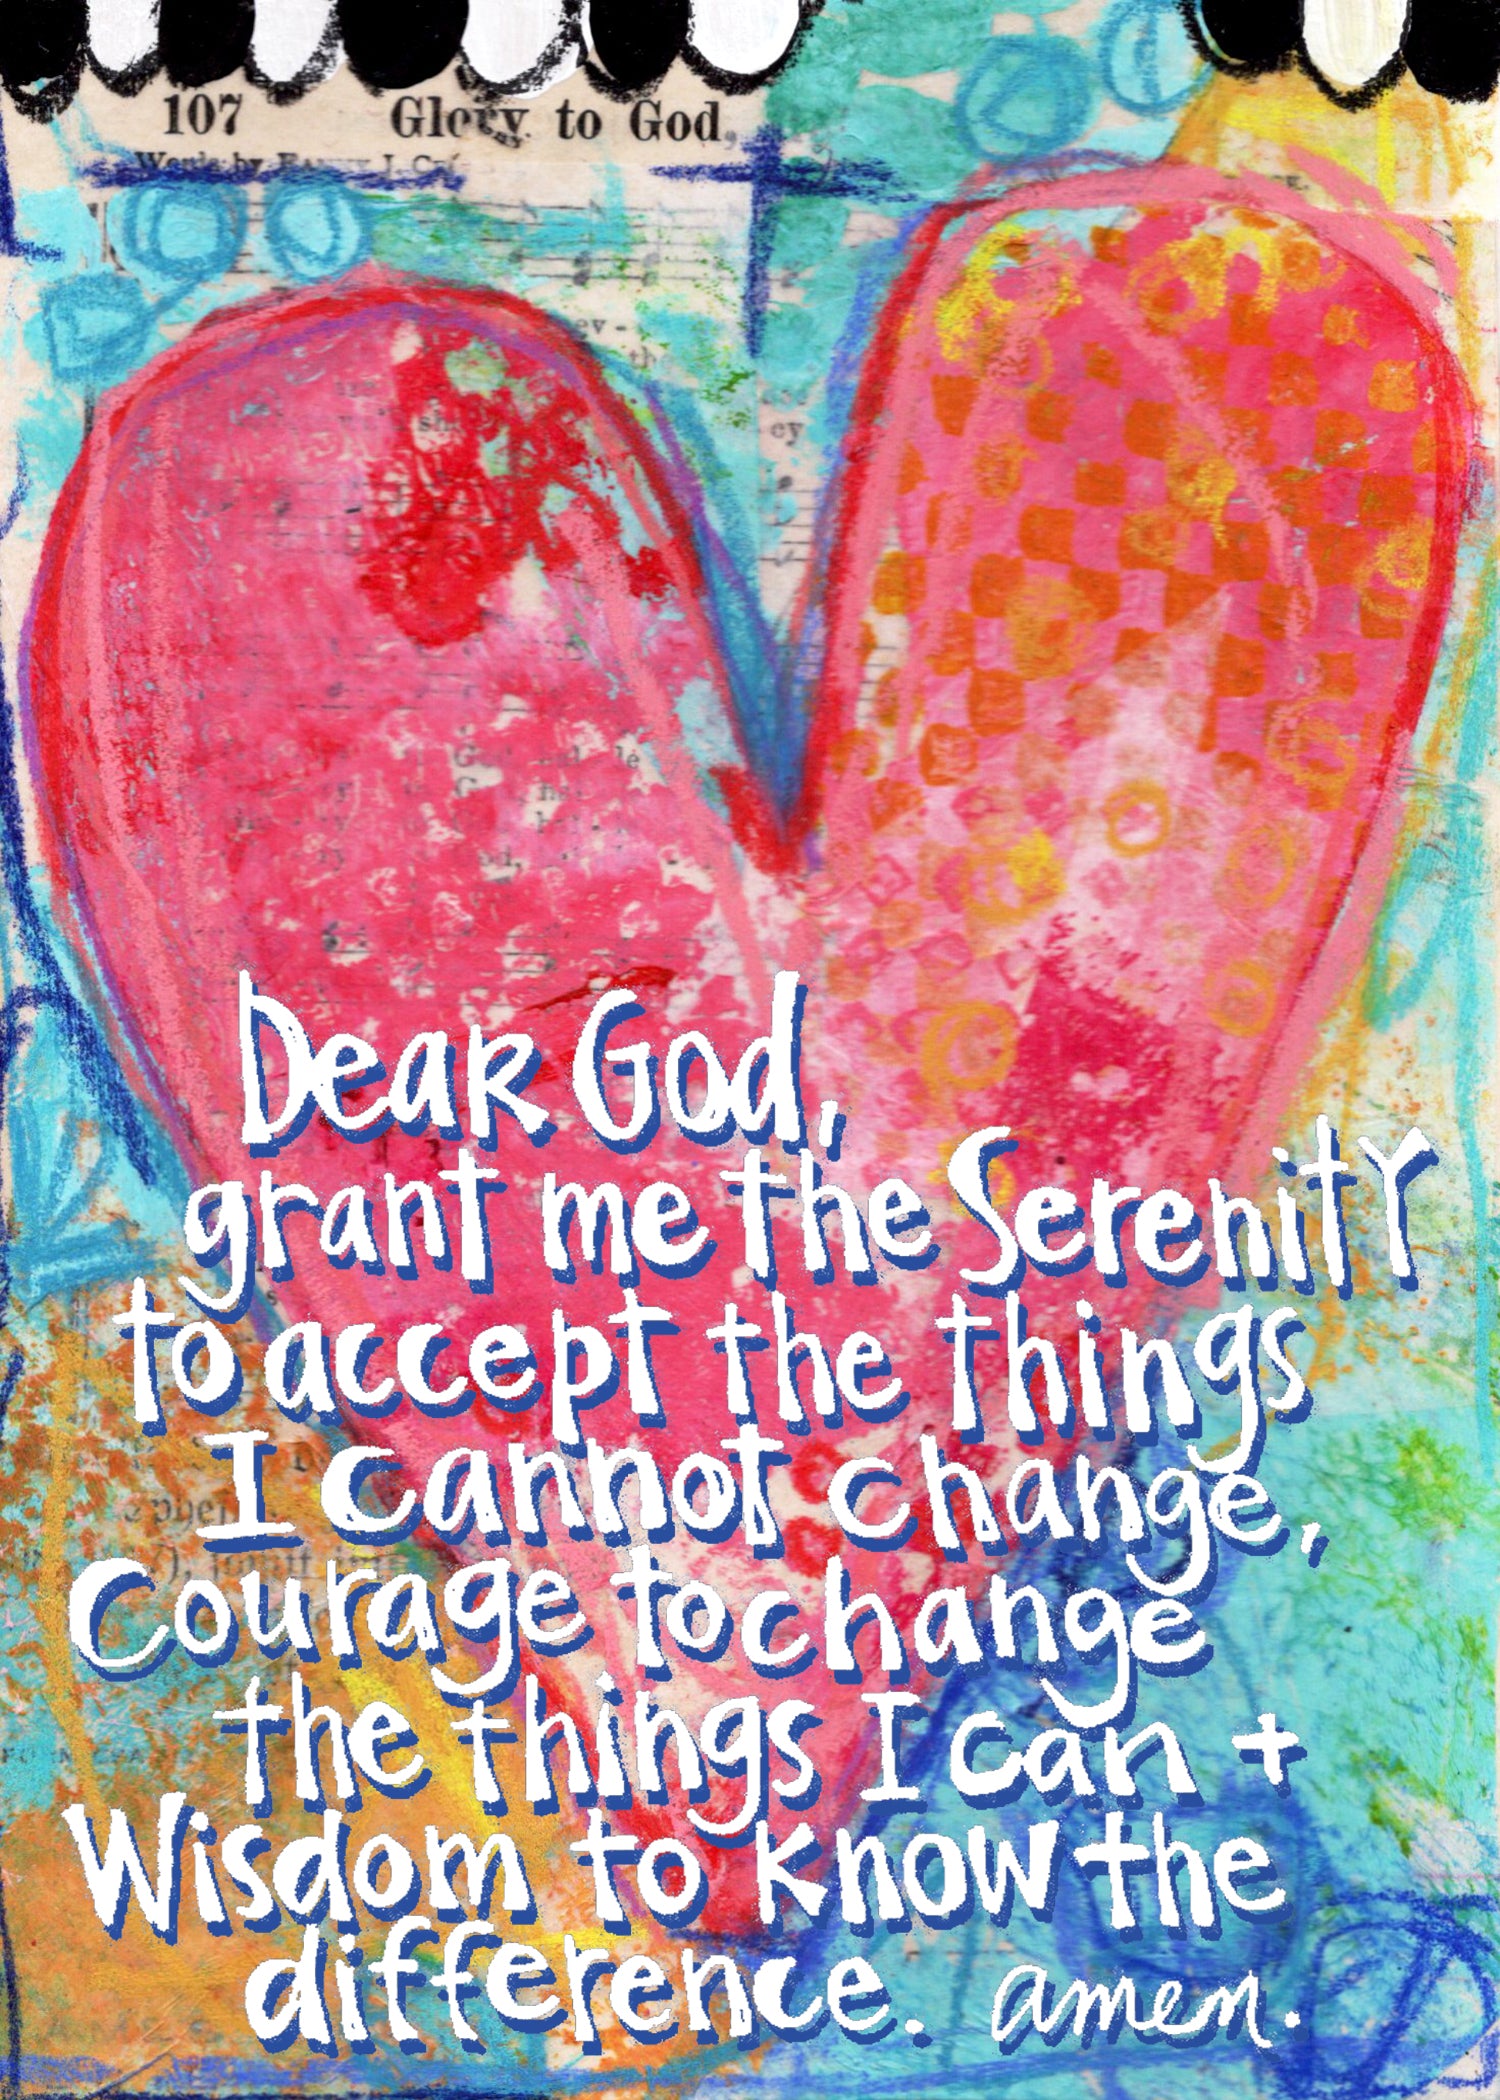 107 Glory to God,
Words by
Dear God,
grant me the Serenity
to accept the things
I cannot change,
Courage to change
the things I can +
Wisdom to know the
difference. amen.